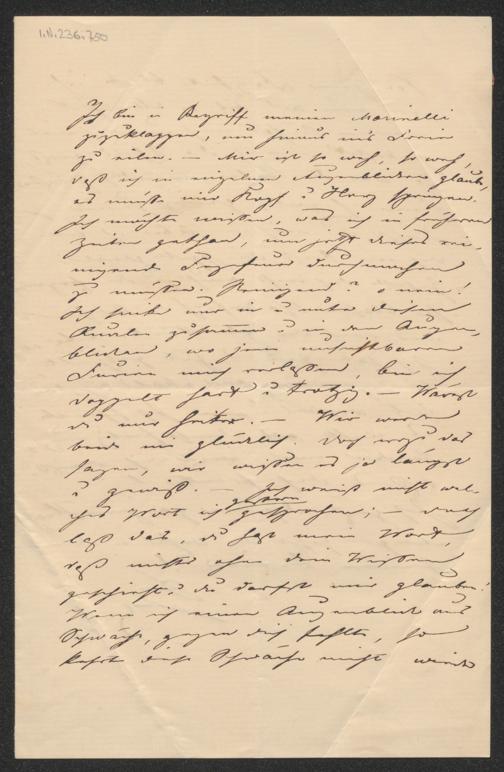 I.N. 236.750
Ich bin im Begriff meinen Marinelli
zuzuklappen, um hinaus ins Freie
zu eilen. — Mir ist so weh, so weh,
daß ich in einzelnen Augenblicken glaube,
es müßte mir Kopf u Herz springen.
Ich möchte wissen, was ich in früheren
Zeiten gethan, um jetzt dieses rei-
nigende Fegefeuer durchmachen
zu müssen. Reinigend? o nein!
Ich sinke nur in u unter diesen
Qualen zusammen u in den Augen-
blicken, wo jene unsichtbaren
Furien mich verlassen, bin ich
doppelt hart u trotzig. — Wärest
du nur heiter. — Wir werden
beide nie glücklich. Doch wozu das
sagen, wir wissen es ja längst
u gewiß. — Ich weiß nicht wel-
ches Wort ich gestern gesprochen; — doch
laß das, du hast mein Wort,
daß nichts ohne dein Wissen
geschieht u du darfst mir glauben!
Wenn ich einen Augenblick aus
Schwäche, gegen dich fehlte, so
kehrt diese Schwäche nicht wieder